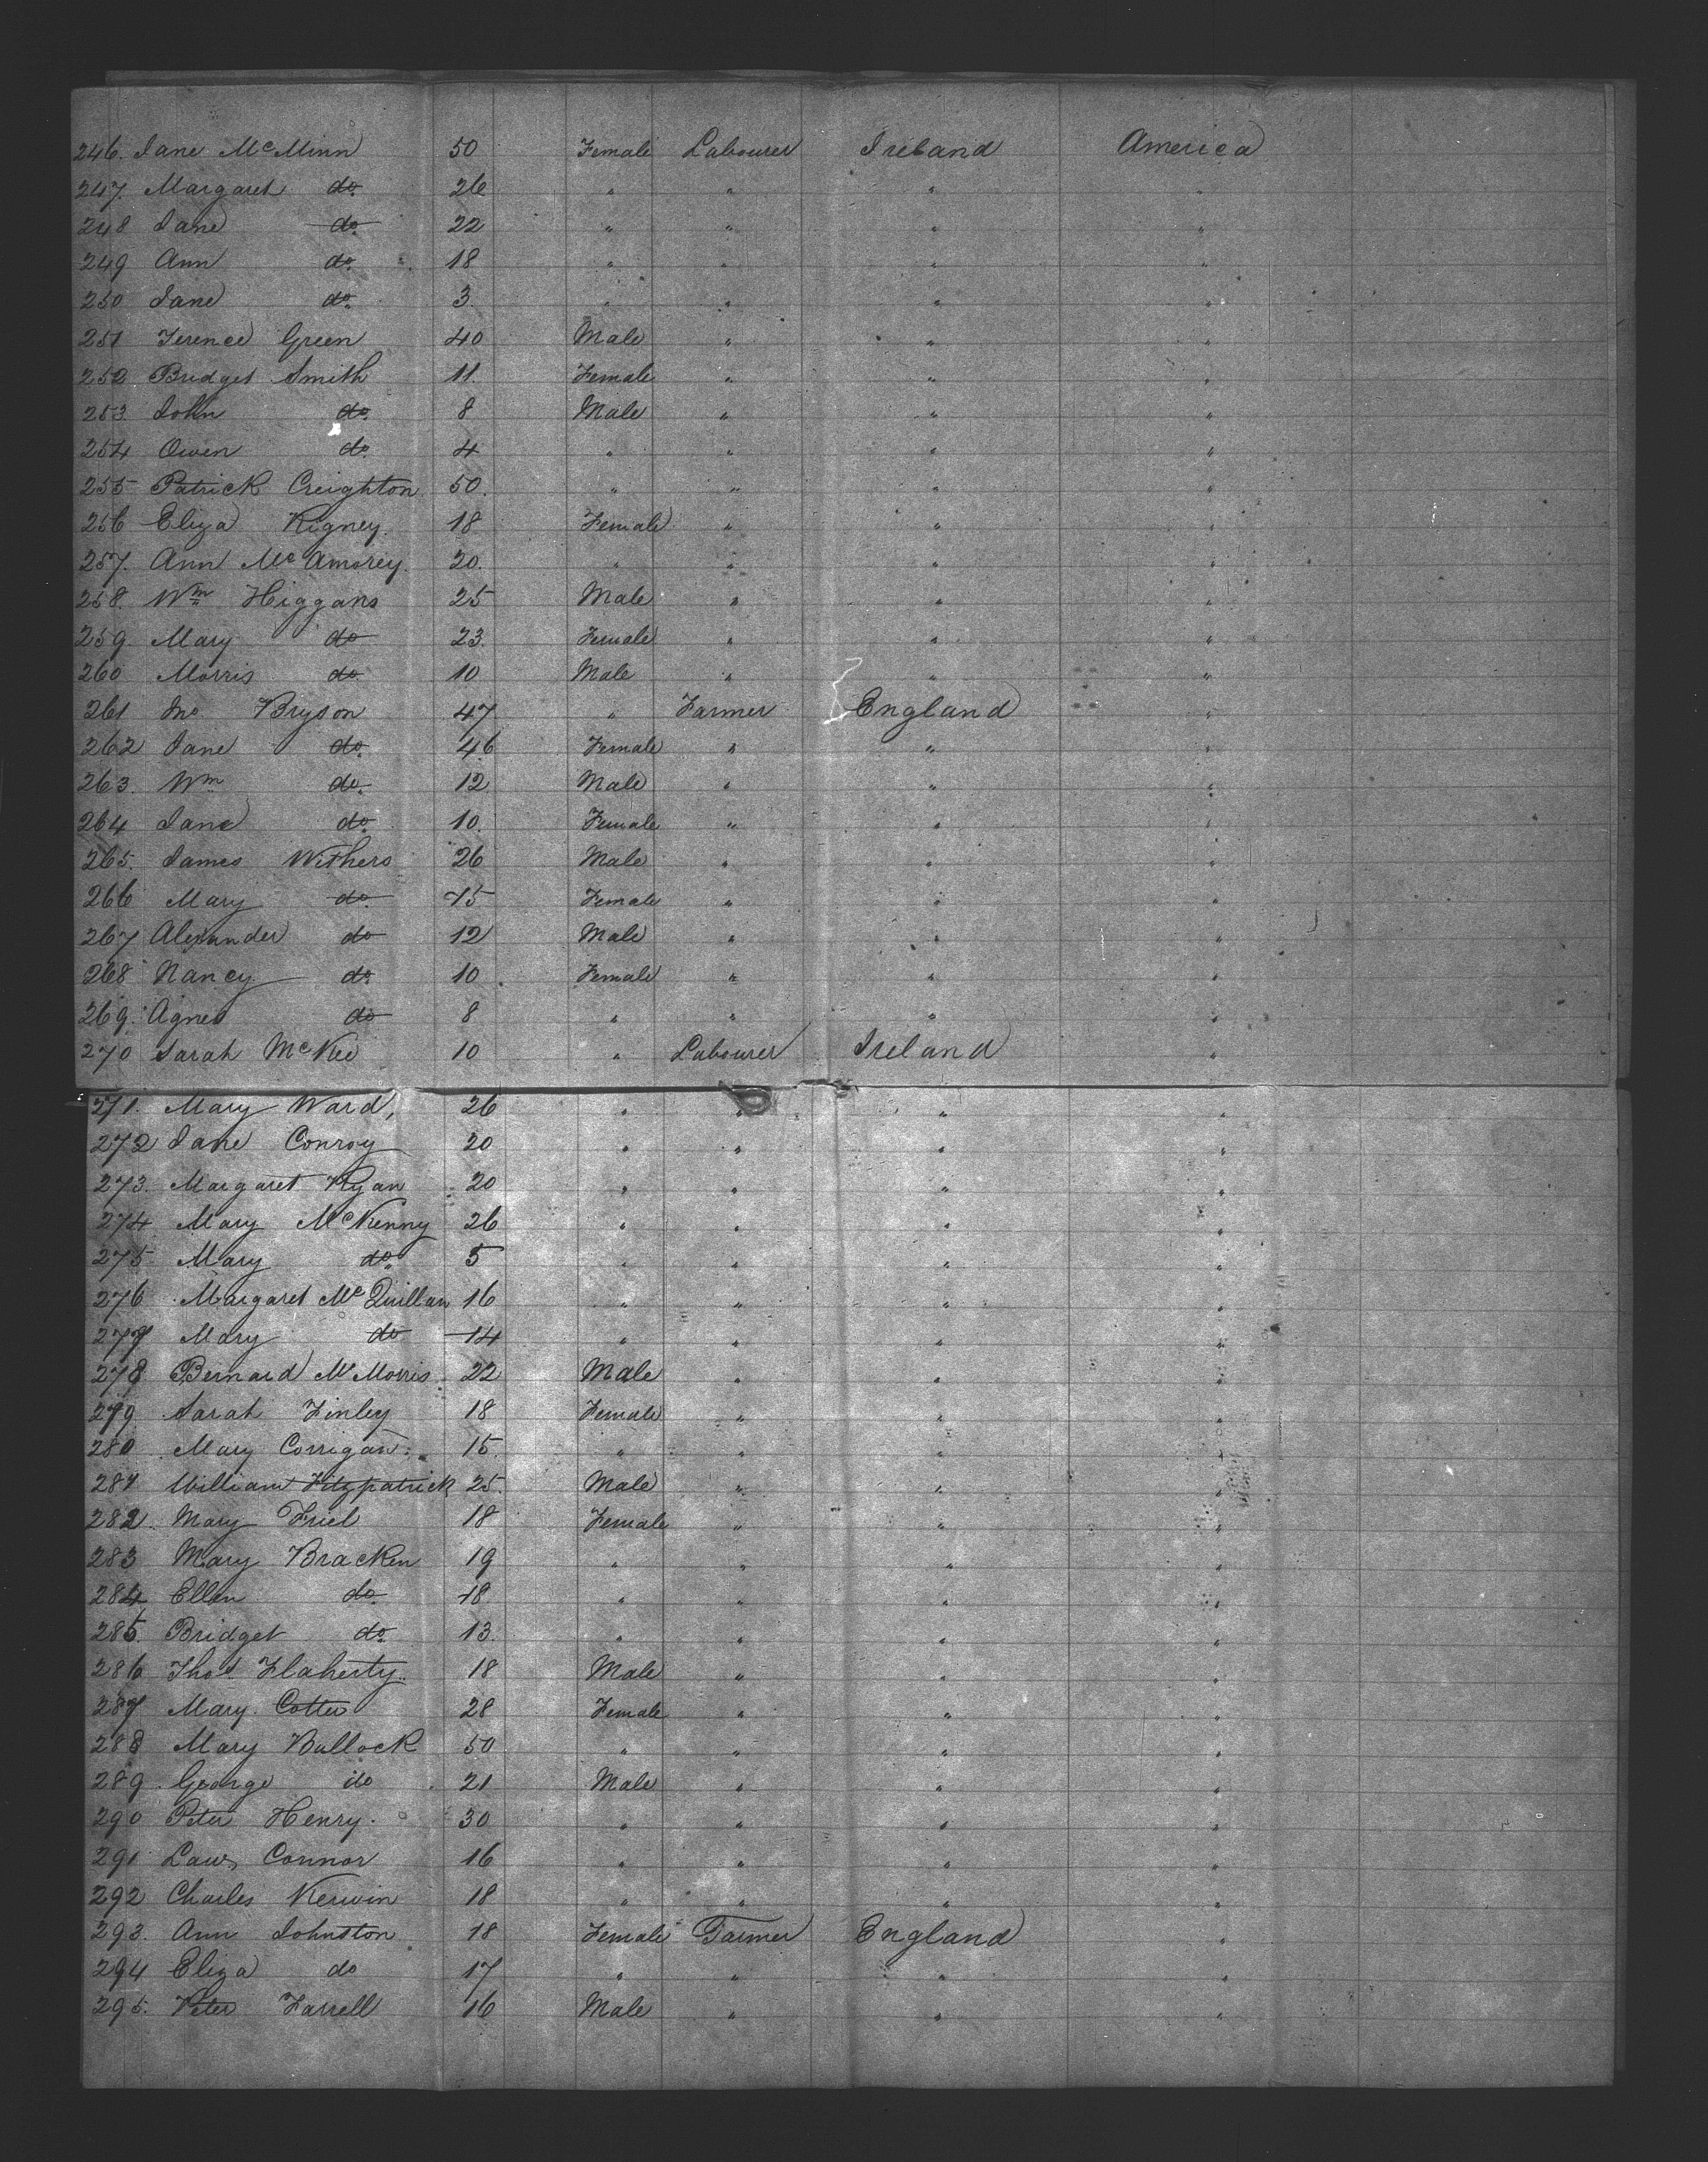 246. Jane McMinn 50 Female Labourer Ireland America
247. Margaret do. 26 " " " "
248 Jane do. 22 " " " "
249 Ann do. 18 " " " "
250 Jane do. 3. " " " "
251 Terence Green 40 Male " " "
252 Bridget Smith 11. Female " " "
253 John do. 8 Male " " "
254 Owen do. 4 " " " "
255 Patrick Creighton 50. " " " "
256 Eliza Rigney. 18 Female " " "
257. Ann McAmorey. 20. " " " "
258. Wm Higgans 25 Male " " "
259. Mary do 23. Female " " "
260 Morris do. 10 Male " " "
261 Jno Bryson 47 " Farmer England "
262 Jane do. 46 Female " " "
263. Wm do. 12 Male " " "
264 Jane do. 10. Female " " "
265. James Withers 26 Male " " "
266 Mary do. 15 Female " " "
267 Alexander do 12 Male " " "
268 Nancy do. 10 Female " " "
269. Agnes do 8 " " " "
270 Sarah McKee 10 " Labourer Ireland "
271. Mary Ward, 26 " " " "
272 Jane Conroy 20 " " " "
273. Margaret Ryan 20 " " " "
274 Mary McKenny 26 " " " "
275 Mary do. 5 " " " "
276 Margaret McQuillan 16 " " " "
277 Mary do 14 " " " "
278 Bernard McMorris. 22 Male " " "
279 Sarah Finley 18 Female " " "
280 Mary Corrigan. 15. " " " "
281 William Fitzpatrick 25. Male " " "
282. Mary Friel 18 Female " " "
283 Mary Bracken 19 " " " "
284 Ellen do. 18 " " " "
285. Bridget do. 13. " " " "
286 Thos. Flaherty. 18 Male " " "
287 Mary. Cotter 28 Female " " "
288 Mary Bullock 50 " " " "
289. George do 21 Male " " "
290 Peter Henry. 30 " " " "
291 Connor 16 " " " "
292 Charles Kerwin 18 " " " "
293. Ann Johnston 18 Female Farmer England "
294 Eliza do 17 " " " "
295. Peter Farrell 16 Male " " "